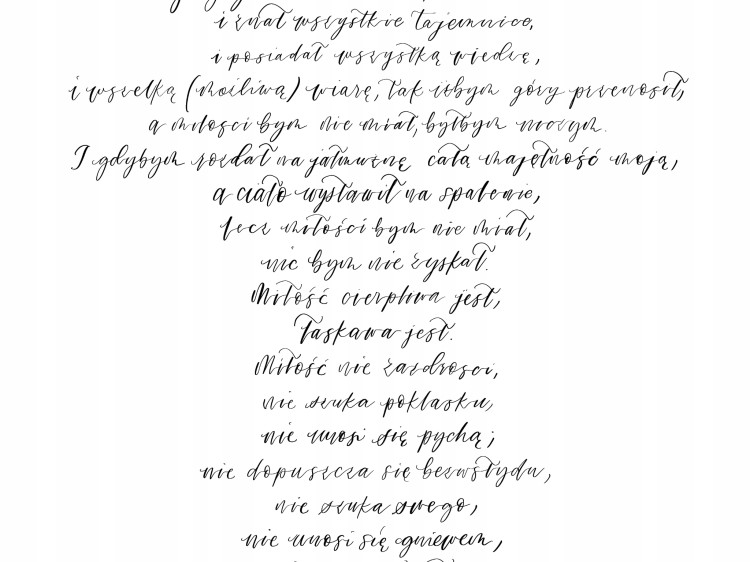 i znał wszystkie tajemnice,
i posiadał wszystką wiedzę,
i wszelką (możliwą) wiarę, tak iżbym góry przenosił,
a miłości bym nie miał, byłbym niczym.
I gdybym rozdał na jałmużnę całą majętność moją,
a ciało wystawił na spalenie,
lecz miłości bym nie miał,
nic bym nie zyskał.
Miłość cierpliwa jest,
łaskawa jest.
Miłość nie zazdrości,
nie szuka poklasku,
nie unosi się pychą;
nie dopuszcza się bezwstydu,
nie szuka swego,
nie unosi się gniewem,